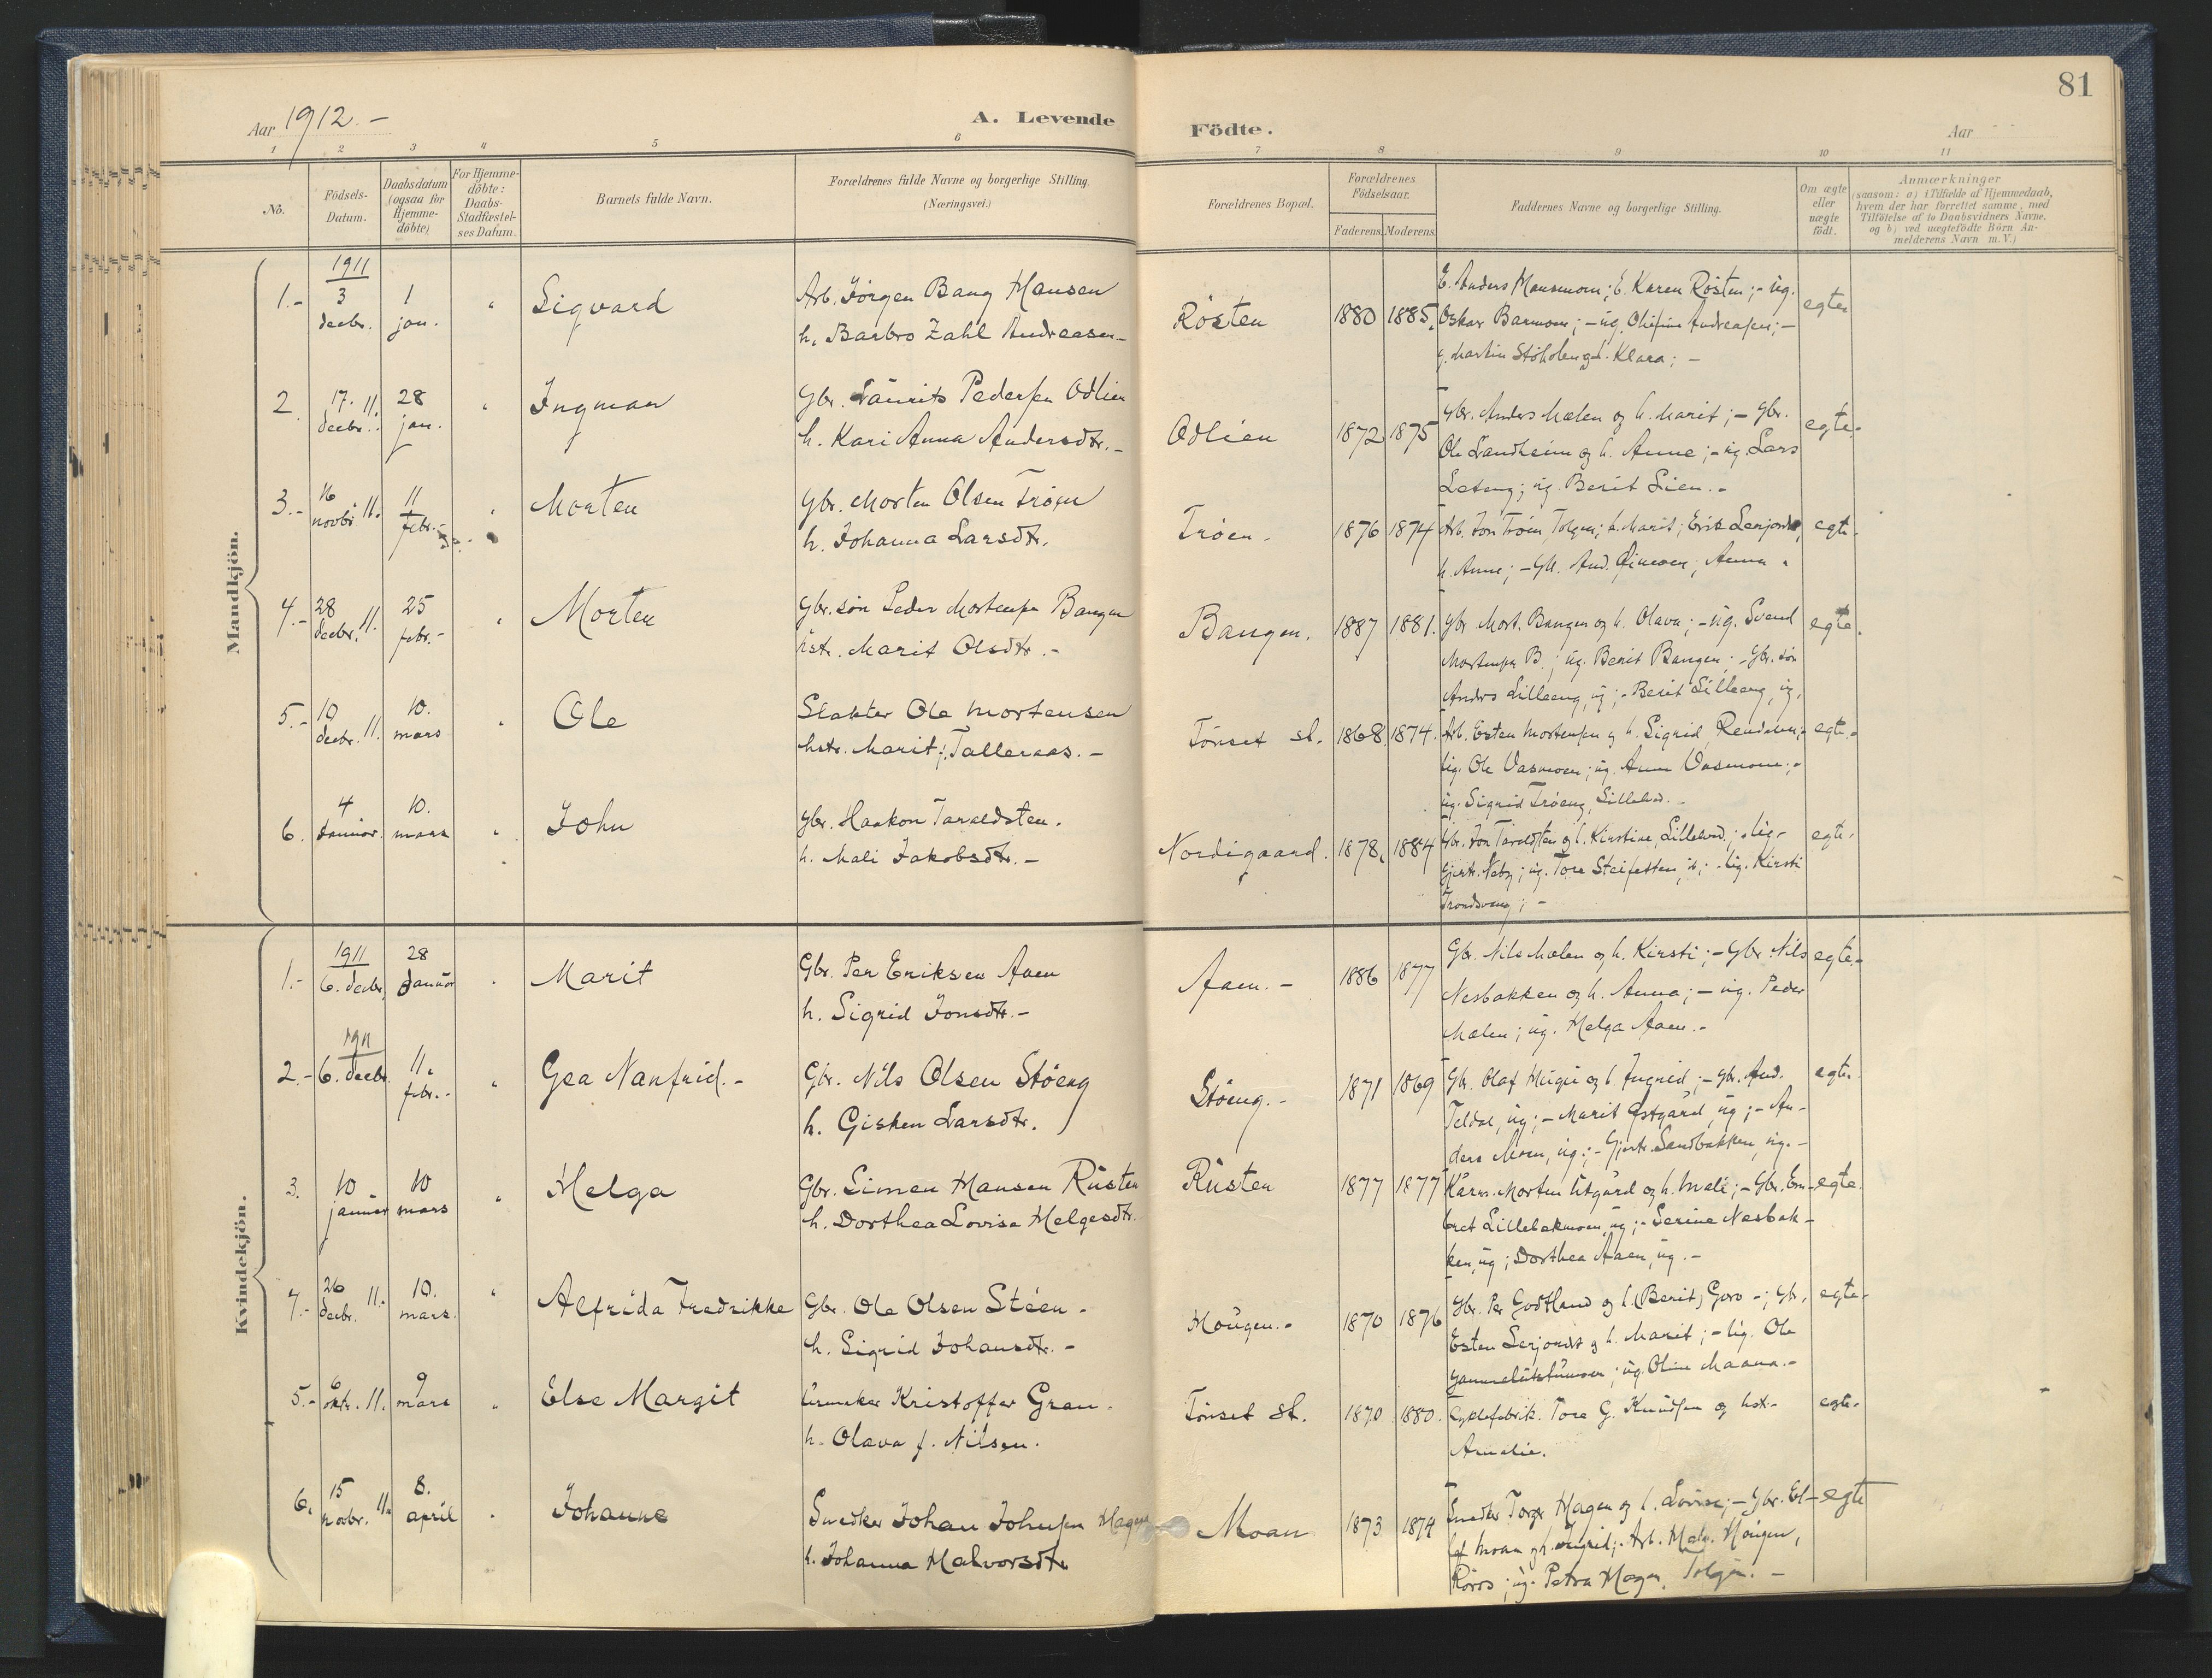 81
Aar 1912.-
A. Levende
Födte.
Aar
1 2 3 4 5 6 7 8 9 10 11
No.
Födsels-
Datum.
Daabsdatum
(ogsaa for
Hjemme-
döbte)
For Hjemme-
döbte:
Daabs-
Stadfæstel-
ses Datum.
Barnets fulde Navn.
Forældrenes fulde Navne og borgerlige Stilling.
(Næringsvei.)
Forældrenes Bopæl.
Forældrenes
Födselsaar.
Faderens. Moderens.
Faddernes Navne og borgerlige Stilling.
Om ægte
eller
uægte
födt.
Anmærkninger
(saasom: a) i Tilfælde af Hjemmedaab,
hvem der har forrettet samme, med
Tilföielse af to Daabsvidners Navne,
og b) ved uægtefödte Börn An-
melderens Navn m. V.)
Mandkjön.
1.- 1911 3 decbr. 1 jan. " Sigvard
Arb. Jörgen Bang Hansen
h. Barbro Zahl Andreasen -
Rösten 1880 1885.
E. Anders Mansmoen; E. Karen Rösten; - ug.
Oskar Barmoen; - ug. Olefine Andreasen; -
g. Martin Stöholen g h. Klara; -
egte
2. 17. decbr. 11. 28 jan. " Ingman
Gbr. Laurits Pedersen Odlien
h. Kari Anna Andersdtr. -
Odlien 1872 1875
Gbr. Anders Mælen og h. Marit; - Gbr.
Ole Sandheim og h. Anne; - ug. Lars
Leteng; ug. Berit Lien. -
egte.
3.- 16 novbr 11. 11 febr. - " Morten
Gbr. Morten Olsen Tröen
h. Johanna Larsdtr.
Tröen. 1876 1874
Arb. Jon Tröen, Tolgen; h. Marit; Erik
h. Anne; - Gbr. And. Anna
egte.
4.- 28 decbr. 11. 25 febr. - " Morten
Gbr. sön Peder Mortensen Bangen
hstr. Marit Olsdtr. -
Bangen. 1887 1881.
Gbr Mort. Bangen og h. Olava; - ug. Svend
Mortensen B.; ug. Berit Bangen; - Gbr. sön
Anders Lilleeng, ug; - Berit Lilleeng, ug.
egte.
5.- 10 decbr. 11. 10. mars " Ole
Slakter Ole Mortensen
hstr. Marit f. Talleraas. -
Tönset st. 1868. 1874.
Arb. Esten Mortensen g h. Sigrid Rendalen; -
ug. Ole Vasmoen; ug. Anne Vasmoen; -
ug. Sigrid Tröeng, Lilleeled. -
egte.
6. 4 Januar. 10. mars " John
Gbr. Haakon Taraldsten.
h. Mali Jakobsdtr. -
Nordigaard. 1878. 1884
Gbr. Jon Taraldsten og h. Kirstine, ug.
Gjert. Neby; ug. Tore ug. Kirsti
Trondsvang; -
egte.
Kvindekjön.
1.- 1911 6. decbr, 28 Januar " Marit
Gbr. Per Eriksen Aaen
h. Sigrid Jonsdtr. -
Aaen. - 1886 1877
Gbr. Nils Mælen og h. Kirsti; - Gbr. Nils
Nesbakken og h. Anna; - ug. Peder
Mælen; ug. Helga Aaen. -
egte.
2.- 1911 6. decbr. 11. febr. - " Gea Nanfrid. -
Gbr. Nils Olsen Stöeng
h. Gisken Larsdtr.
Stöeng. - 1871 1869
Gbr. Olaf Hugu og h. Ingrid; - gbr. And.
Teldal, ug; - Marit Östgård, ug; - An-
ders Moen, ug.; - Gjertr. Sandbakken, ug. -
egte.
3. 10 januar 10 mars " Helga
Gbr. Simen Hansen Rusten
h. Dorthea Lovisa Helgesdtr.
Rusten 1877 1877
Morten Utgård og h. Mali; - Gbr. Em-
bret Lillebakmoen, ug; - Serine Nesbak-
ken, ug; Dorthea Aaen, ug. -
egte.
4.- 26 decbr. 11. 10. mars. " Alfrida Fredrikke
Gbr. Ole Olsen Stéen -
h. Sigrid Johansdtr. -
Hougen. - 1870 1876
Gbr. Per Godtland og h. (Berit) Goro -; gbr.
Esten g h. Marit; - ug. Ole
ug. Oline Maana. -
egte.
5.- 6 oktr. 11. 9 mars " Else Margit
Urmaker Kristoffer Gran.
h. Olava f. Nilsen.
Tönset st. 1870. 1880.
Cyklefabrik. Tore G. Knudsen og hstr.
Amalie.
egte.
6. 15 novbr. 11. 8. april " Johanne
Snedker Johan Johnsen Hagen
h. Johanna Halvorsdtr
Moan 1873 1874
Snedker Torger Hagen og h. Lovise; - Gbr. El-
lef Moan og h. Ingrid; - Arb. Halv. Hougen,
Röros; ug. Petra Hagen, Tolgen. -
egte